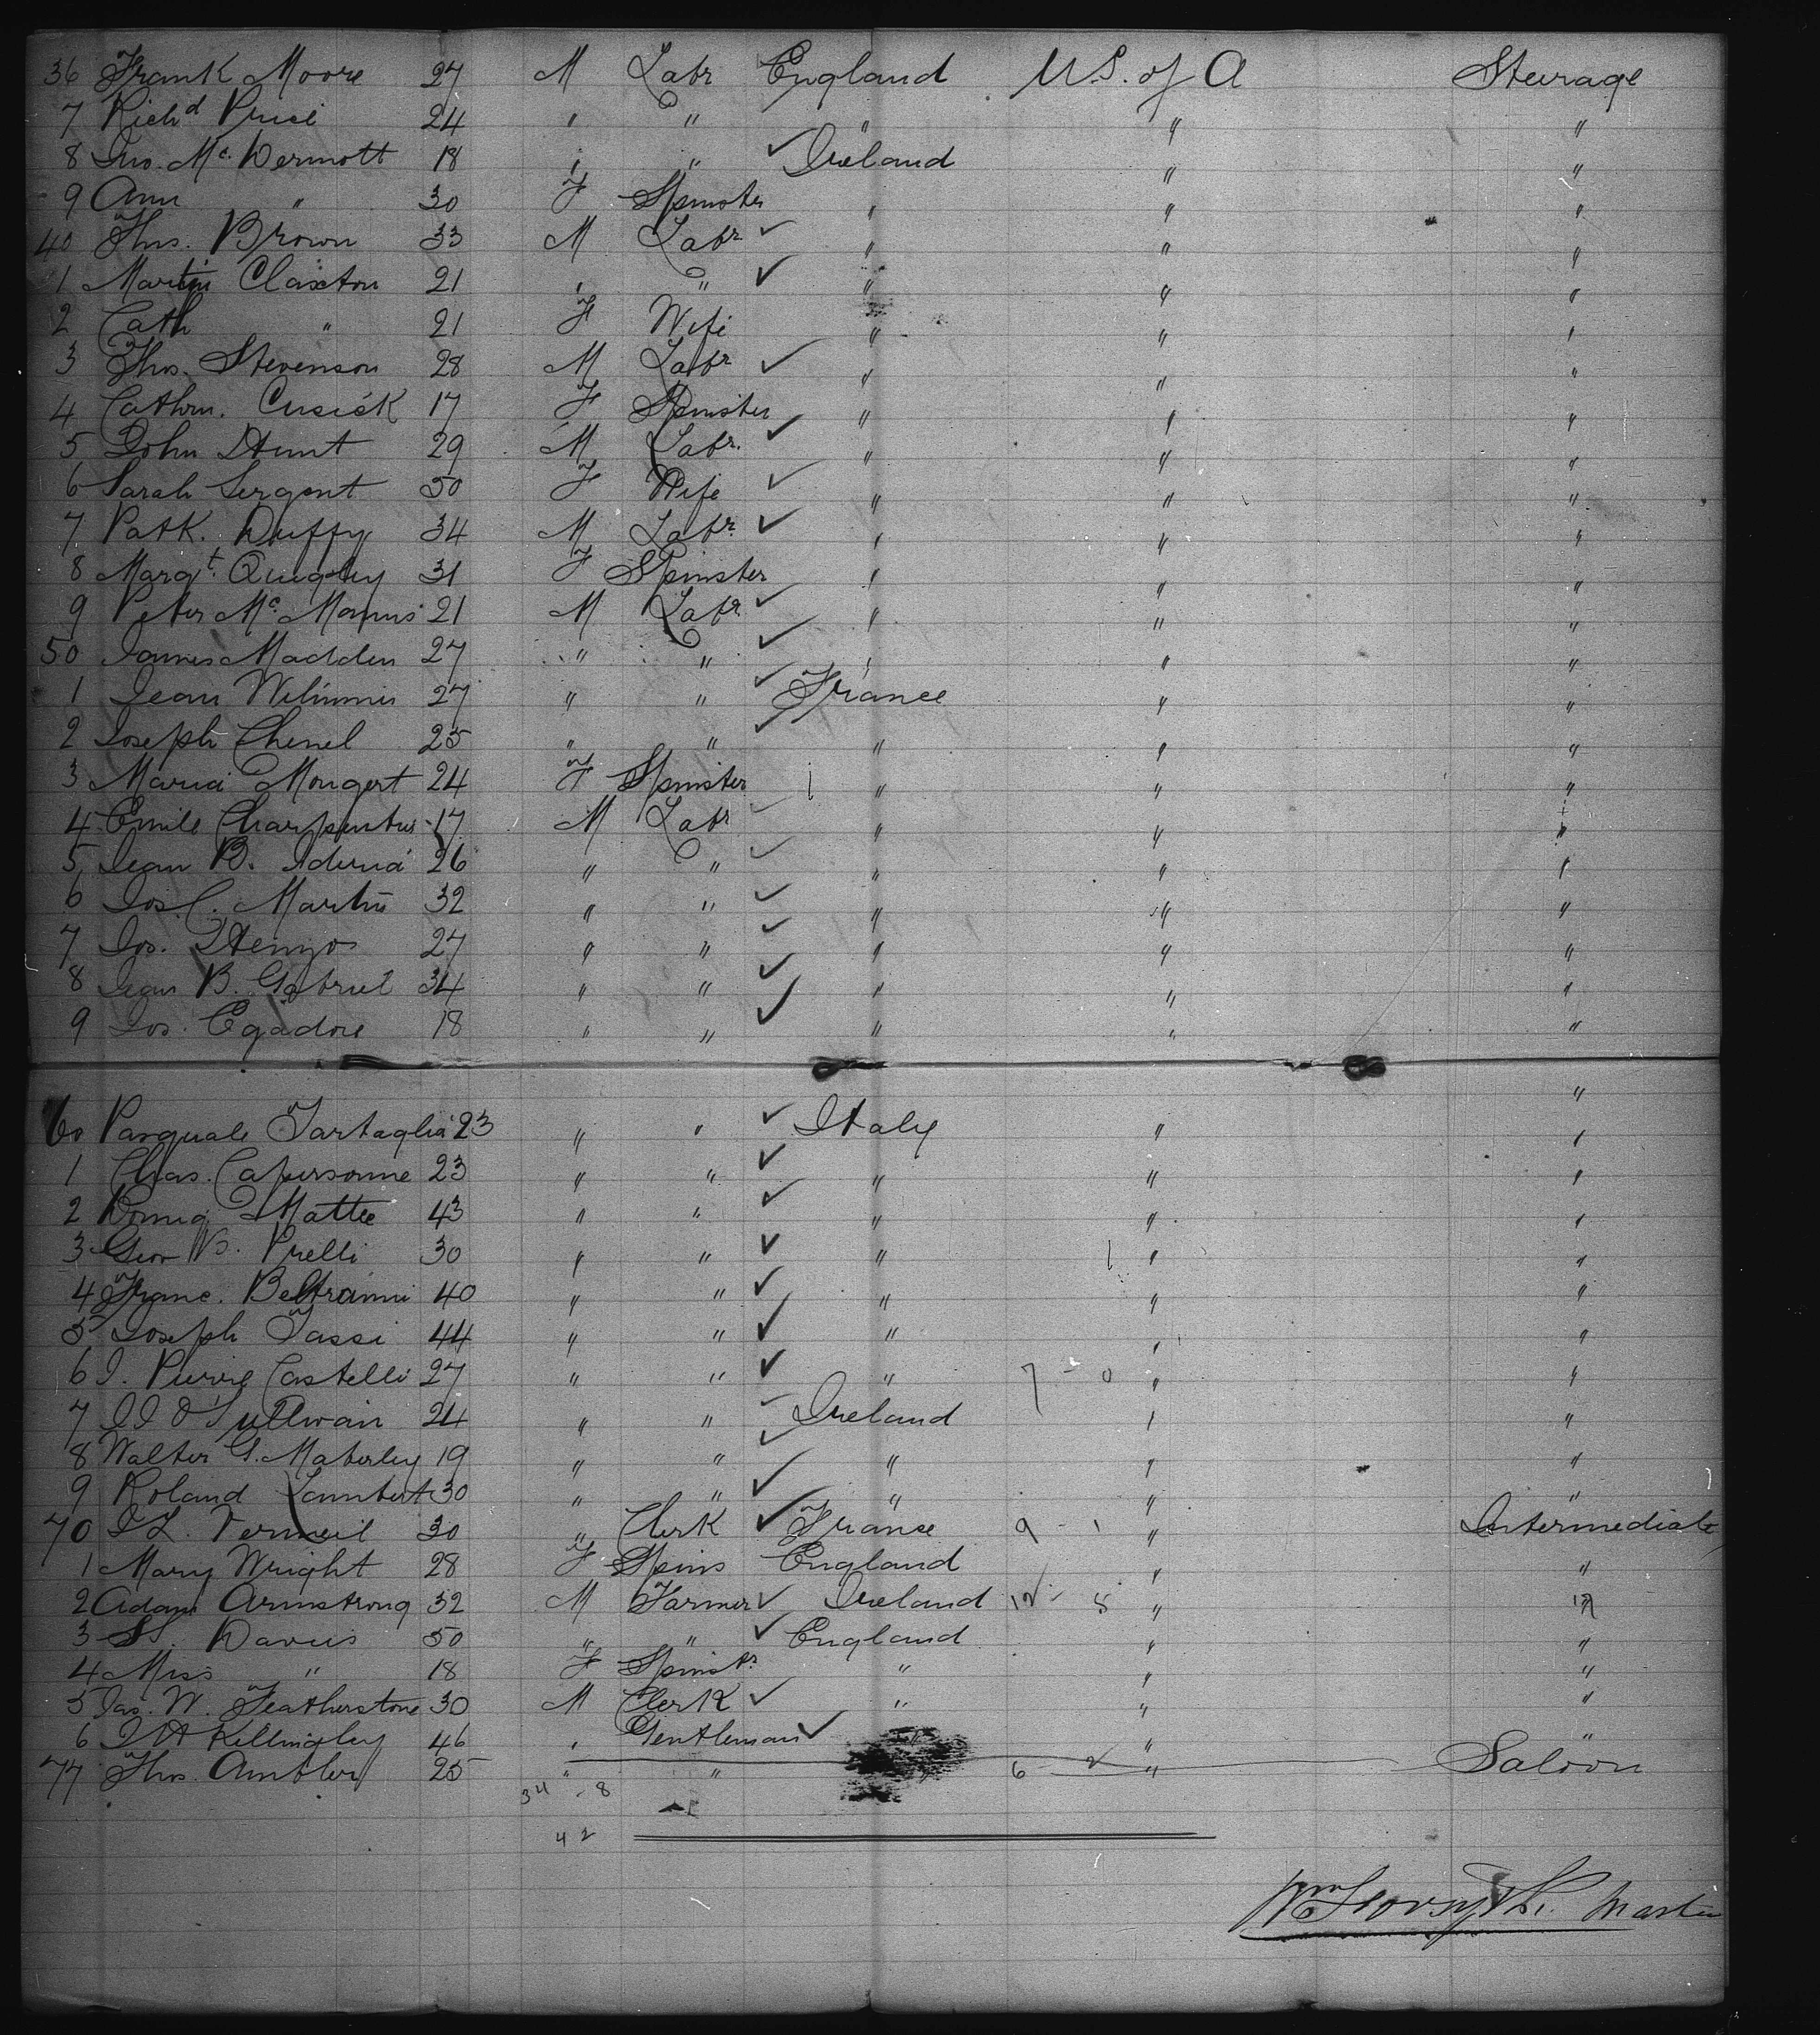 36 Frank Moore 27 M Labr England U.S. of A Steerage
7 Richd Price 24 " " " " "
8 Jno. Mc.Dermott 18 " " Ireland " "
9 Ann " 30 F Spinster " " "
40 Thos. Brown 33 M Labr " " "
1 Martin Claxton 21 " " " " "
2 Cath " 21 F Wife " " "
3 Thos. Stevenson 28 M Labr " " "
4 Cathrn. Cusick 17 F Spinster " " "
5 John Hunt 29 M Labr. " " "
6 Sarah Sergent 50 F Wife " " "
7 Patk. Duffy 34 M Labr. " " "
8 Margt. Quigley 31 F Spinster " " "
9 Peter Mc.Manus 21 M Labr " " "
50 James Madden 27 " " " " "
1 Jean 27 " " France " "
2 Joseph Chenel 25 " " " " "
3 Maria Mougert 24 F Spinster " " "
4 Emile Charpentier 17 M Labr " " "
5 Jean B. 26 " " " " "
6 Jos. C. Martin 32 " " " " "
7 Jos. 27 " " " " "
8 Jean B. Gabriel 34 " " " " "
9 Jos. Egadore 18 " " " " "
"
60 Pasquale Tartaglia 23 " " Italy " "
1 Chas. Capersonne 23 " " " " "
2 Domiq Mattee 43 " " " " "
3 Geo B. Prelli 30 " " " " "
4 Franc. Beltramini 40 " " " " "
5 Joseph Tassi 44 " " " " "
6 J. Pierre Castelli 27 " " " 7 - 0 " "
7 J J O'Sullivan 24 " " Ireland " "
8 Walter G. Maberley 19 " " " " "
9 Roland Lambert 30 " " " " "
70 J L. Vermeil 30 " Clerk France 9 - 1 " Intermediate
1 Mary Wright 28 F Spins England " "
2 Adam Armstrong 32 M Farmer Ireland 12 - 5 " "
3 Davis 50 " " England " "
4 Miss " 18 F Spinstr " " "
5 Jas. W. Featherstone 30 M Clerk " " "
6 J H Killingley 46 " Gentleman " "
77 Thos. Ambler 25 " " 6 - 2 " Saloon
34 - 8
42
Wm Forsyth. Master